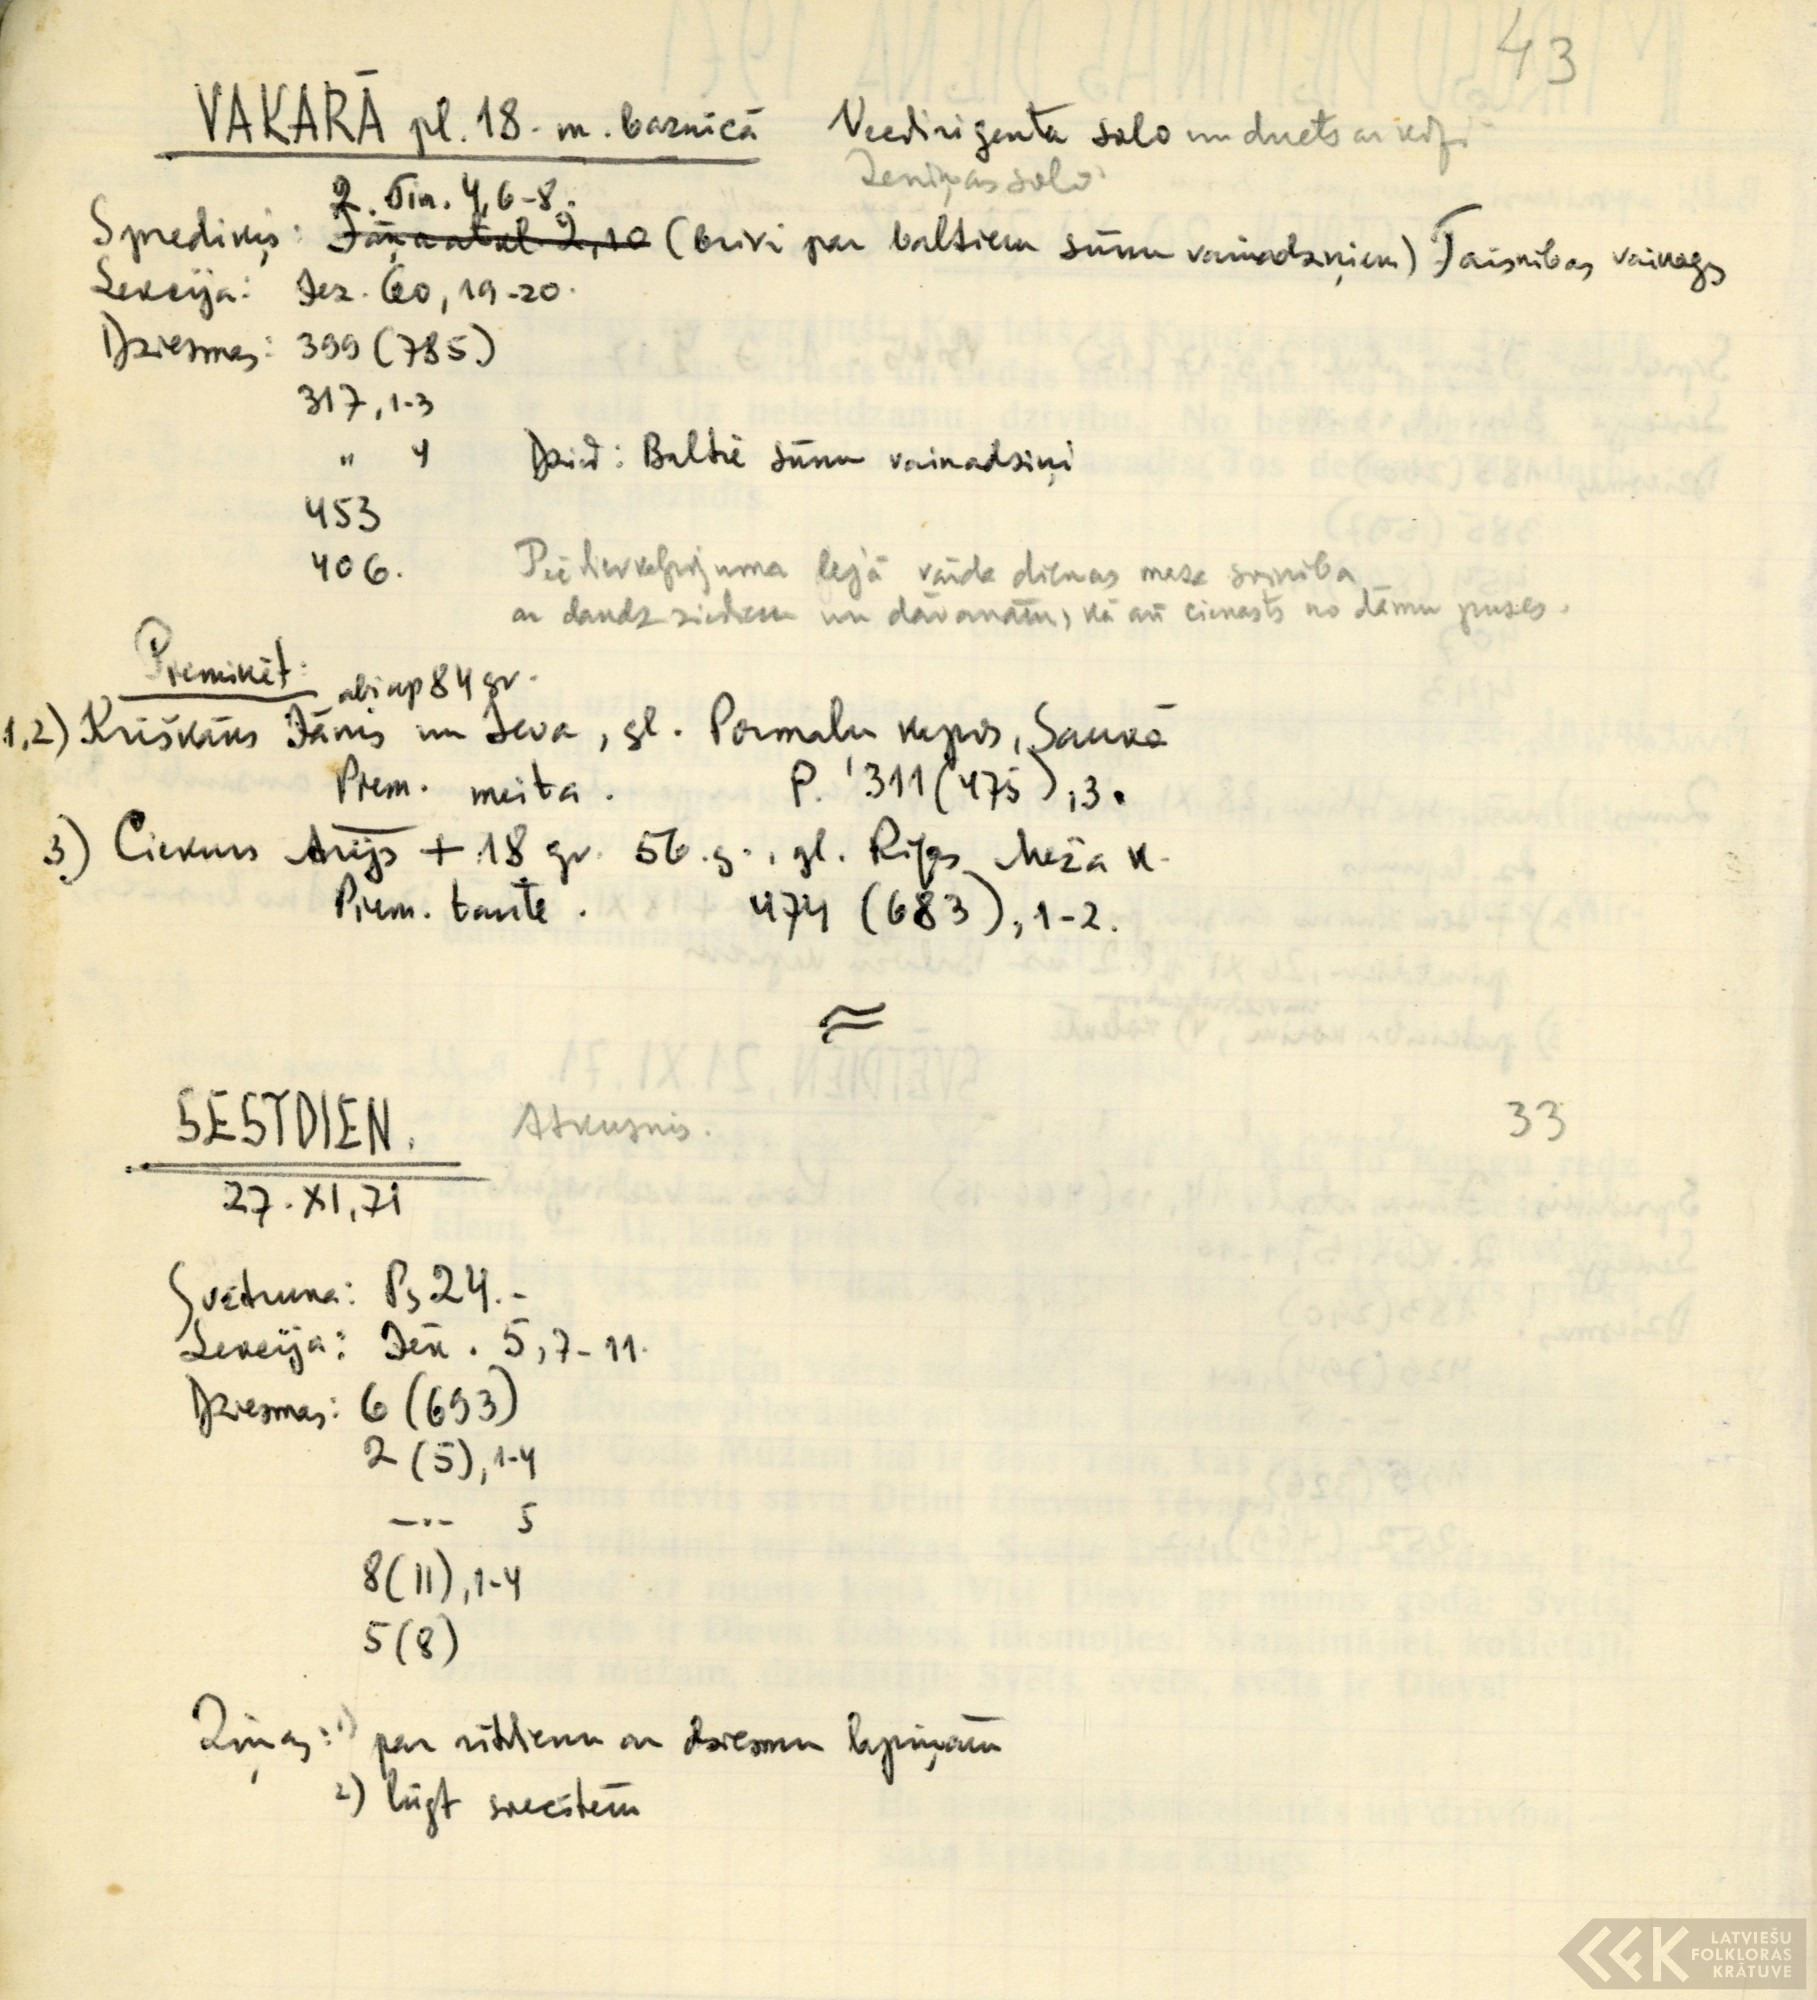 43
VAKARĀ pl. 18. m. baznīcā Vecdirigenta solo un duets ar kdzi
Zeniņas solo
2. Tim. 4, 6-8.
Sprediķis: Jāņa atkl. 2, 10 (brīvi par baltiem sūnu vainadziņiem) Taisnības vainags
Lekcija: Jez. 60, 19-20.
Dziesmas: 399 (785)
317, 1-3
" 4 Dzied: Baltie sūnu vainadziņi
453
406. Pēc dievkalpojuma lejā vārda dienas maza svinība
ar daudz ziediem un dāvanām, kā arī cienasts no dāmu puses.
Pieminēt: abi ap 84 gr.
1,2) Krišķāns Jānis un Ieva, gl. Pormaļu kapos, Saukā
Piem. meita. P. 311 (475), 3.
3) Ciekurs Arijs + 18 gr. 56. g., gl. Rīgas Meža k.
Piem. tante. 474 (683), 1-2.
≈
SESTDIEN. Atkusnis. 33
27. XI, 71
Svētruna: Ps 24.-
Lekcija: Jēk. 5, 7-11.
Dziesmas: 6 (693)
2 (5), 1-4
—"— 5
8 (11), 1-4
5 (8)
Ziņas: 1) par rītdienu ar dziesmu lapiņām
2) lūgt svecītēm
LATVIEŠU
FOLKLORAS
KRĀTUVE